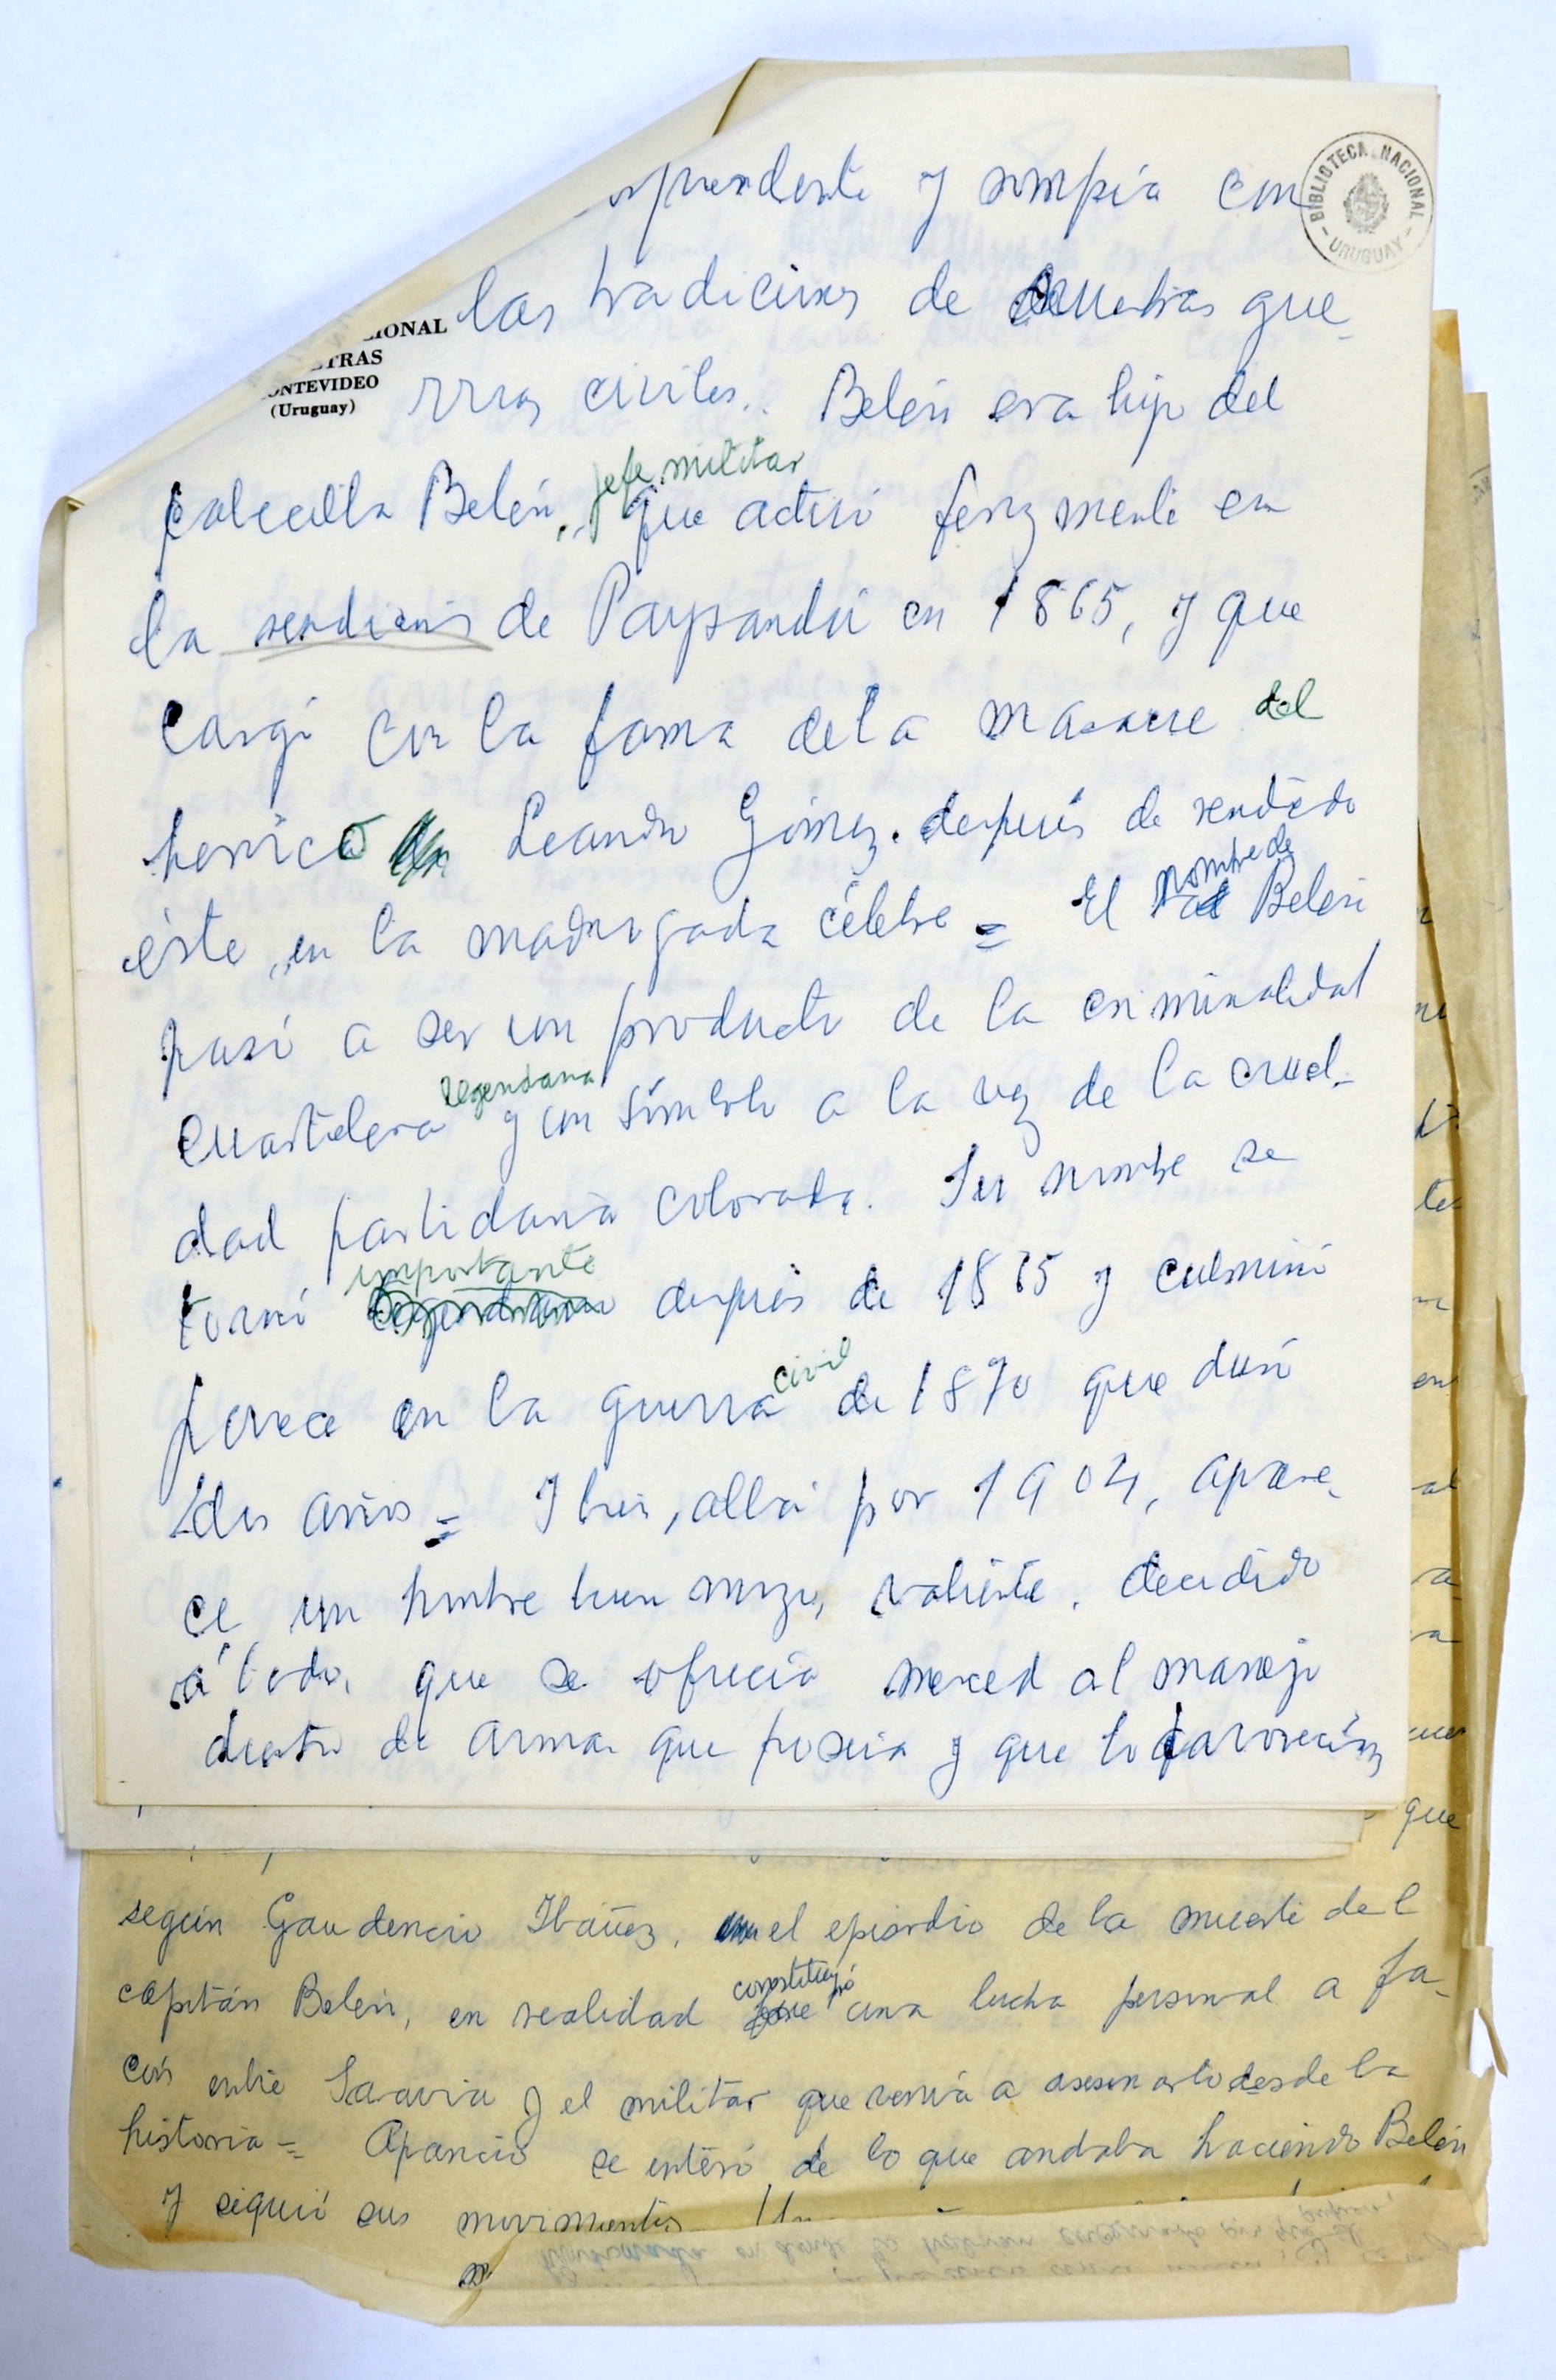 y rompía con
BIBLIOTECA NACIONAL
URUGUAY
las tradiciones de nuestras gue-
IONAL
TRAS
ONTEVIDEO
(Uruguay)
rras civiles.. Belén era hijo del
Belén, jefe militar que actuó ferozmente en
la rendición de Paysandú en 1865, y que
cargó con la fama de la masacre del
heroico Leandro Gómez. después de rendido
éste, en la madrugada célebre = El nombre de Belén
pasó a ser un producto de la criminalidad
cuartelera legendaria y un símbolo a la vez de la cruel-
dad partidaria colorada. Su nombre se
tornó importante después de 1865 y culminó
parece en la guerra civil de 1870 que duró
dos años = Y bien, allá por 1904, apare-
ce un hombre buen mozo, valiente, decidido
a todo, que se ofrecía merced al manejo
diestro de armas que poseía y que lo favorecían
que
según Gaudencio Ibáñez, el episodio de la muerte del
capitán Belén, en realidad constituyó una lucha personal a fa-
cón entre Saravia y el militar que venía a asesinarlo desde la
historia = Aparicio se enteró de lo que andaba haciendo Belén
y siguió sus movimientos